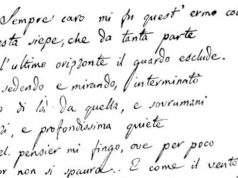 Sempre caro mi fu quest' ermo co
esta siepe, che da tanta parte
l'ultimo orizzonte il guardo esclude.
sedendo e mirando, interminato
o di là da quella, e sovrumani
zi, e profondissima quiete
el pensier mi fingo, ove per poco
or non si spaura.. E come il vento